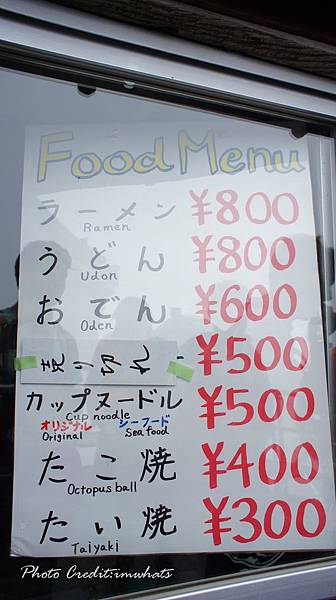 Food Menu
ラーメン ¥800
Ramen
うどん ¥800
Udon
おでん ¥600
Oden
¥500
カップヌードル ¥500
Cup noodle
オリジナル シーフード
Original Sea food
たこ焼 ¥400
Octopus ball
たい焼 ¥300
Taiyaki
Photo Credit:imwhats